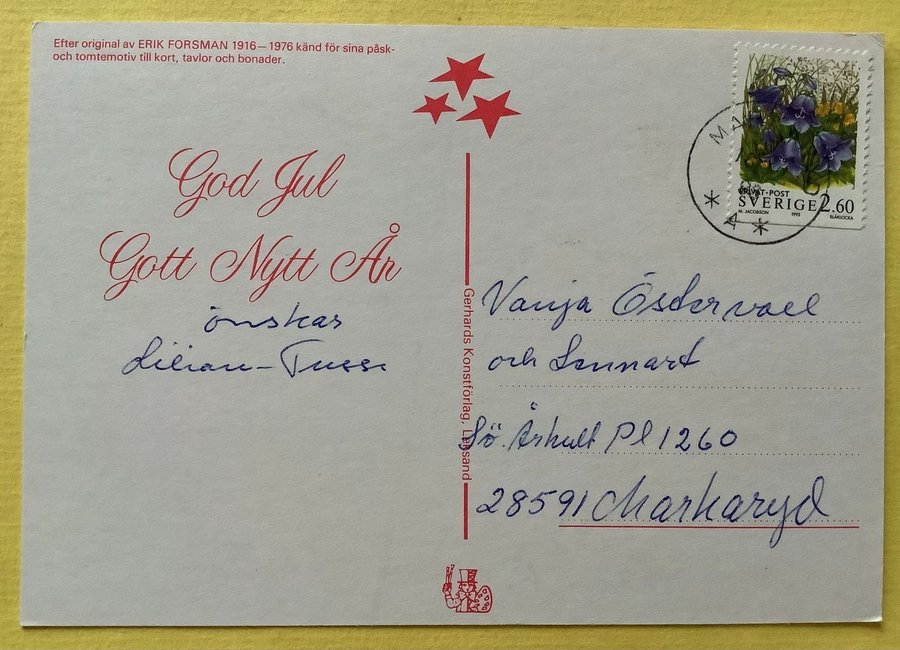 Efter original av ERIK FORSMAN 1916–1976 känd för sina påsk-
och tomtemotiv till kort, tavlor och bonader.
God Jul
Gott Nytt År
önskas
Lilian-Tusse
Gerhards Konstförlag, Lessand
PRIVAT·POST
SVERIGE 2.60
M. JACOBSON 1993 BLÅKLOCKA
MA
A
Vanja Östervall
och Lennart
Sö. Århult Pl 1260
28591 Markaryd